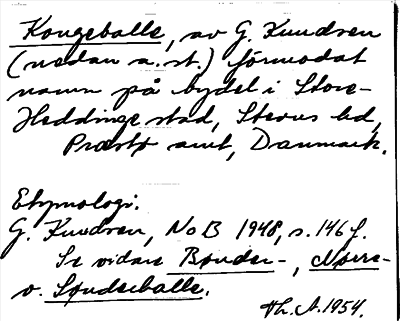 Kongeballe, av G. Knudsen
(nedan a. st.) förmodat
namn på bydel i Store-
Heddinge stad, Stevns hd,
Præstø amt, Danmark.
Etymologi.
G. Knudsen, NoB 1948, s. 146 f.
Se vidare Bønder-, Nørre-
o. Søndreballe.
Th. A. 1954.